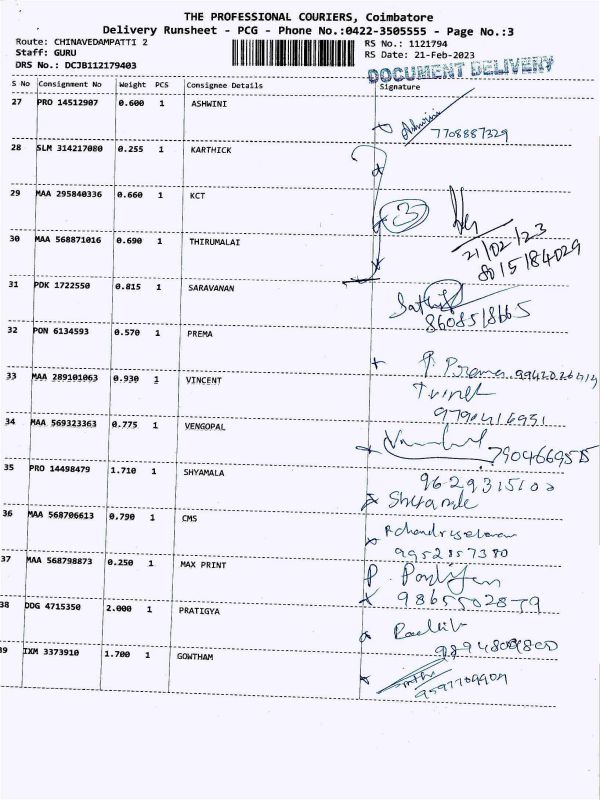 THE PROFESSIONAL COURIERS, Coimbatore
Delivery Runsheet - PCG - Phone No.:0422-3505555 - Page No.:3
Route: CHINAVEDAMPATTI 2
RS No.: 1121794
Staff: GURU
RS Date: 21-Feb-2023
DRS No.: DCJB112179403
DOCUMENT DELIVERY
S No Consignment No Weight PCS Consignee Details Signature
27 PRO 14512907 0.600 1 ASHWINI
Ashwini
7708887329
28 SLM 314217080 0.255 1 KARTHICK
29 MAA 295840336 0.660 1 KCT
3
21/02/23
30 MAA 568871016 0.690 1 THIRUMALAI
8015184029
31 PDK 1722550 0.815 1 SARAVANAN
8608518665
32 PON 6134593 0.570 1 PREMA
Prema
33 MAA 289101063 0.930 1 VINCENT
34 MAA 569323363 0.775 1 VENGOPAL
35 PRO 14498479 1.710 1 SHYAMALA
36 MAA 568706613 0.790 1 CMS
9952857380
37 MAA 568798873 0.250 1 MAX PRINT
9865502879
38 DDG 4715350 2.000 1 PRATIGYA
39 IXM 3373910 1.700 1 GOWTHAM